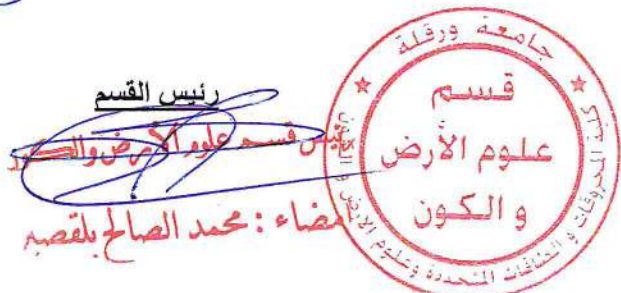 رئيس القسم
رئيس قسم علوم الأرض والكون
إمضاء : محمد الصالح بلقصبه
جامعة ورقلة
قسم
علوم الأرض
و الكون
كلية المحروقات و الطاقات المتجددة وعلوم الارض و الكون